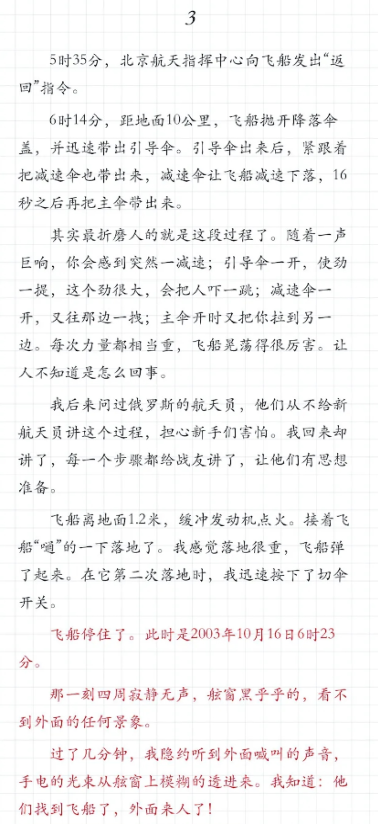 3
5时35分，北京航天指挥中心向飞船发出“返
回”指令。
6时14分，距地面10公里，飞船抛开降落伞
盖，并迅速带出引导伞。引导伞出来后，紧跟着
把减速伞也带出来，减速伞让飞船减速下落，16
秒之后再把主伞带出来。
其实最折磨人的就是这段过程了。随着一声
巨响，你会感到突然一减速；引导伞一开，使劲
一提，这个劲很大，会把人吓一跳；减速伞一
开，又往那边一拽；主伞开时又把你拉到另一
边。每次力量都相当重，飞船晃荡得很厉害。让
人不知道是怎么回事。
我后来问过俄罗斯的航天员，他们从不给新
航天员讲这个过程，担心新手们害怕。我回来却
讲了，每一个步骤都给战友讲了，让他们有思想
准备。
飞船离地面1.2米，缓冲发动机点火。接着飞
船“嗵”的一下落地了。我感觉落地很重，飞船弹
了起来。在它第二次落地时，我迅速按下了切伞
开关。
飞船停住了。此时是2003年10月16日6时23
分。
那一刻四周寂静无声，舷窗黑乎乎的，看不
到外面的任何景象。
过了几分钟，我隐约听到外面喊叫的声音，
手电的光束从舷窗上模糊的透进来。我知道：他
们找到飞船了，外面来人了！